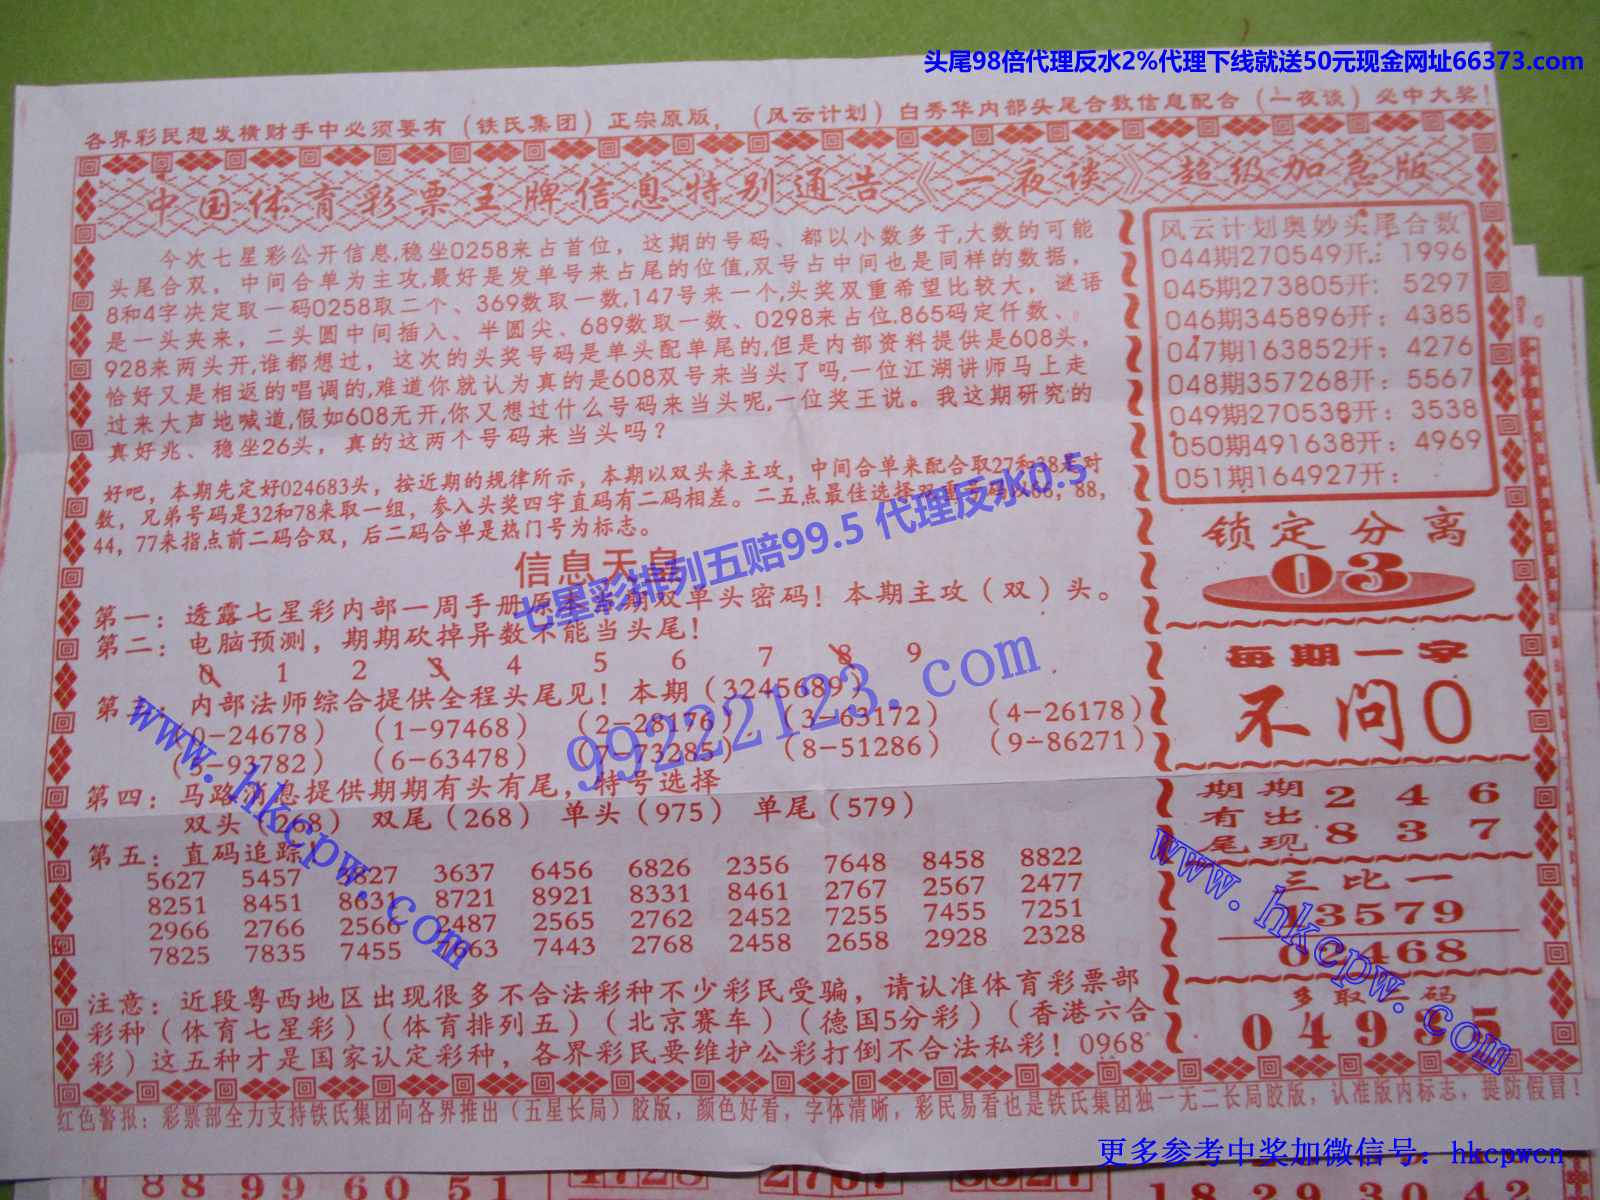 头尾98倍代理反水2%代理下线就送50元现金网址66373.com
各界彩民想发横财手中必须要有（铁氏集团）正宗原版，（风云计划）白秀华内部头尾合数信息配合（一夜谈）必中大奖！
中国体育彩票王牌信息特别通告《一夜谈》超级加急版
今次七星彩公开信息,稳坐0258来占首位，这期的号码、都以小数多于,大数的可能
头尾合双，中间合单为主攻,最好是发单号来占尾的位值,双号占中间也是同样的数据，
8和4字决定取一码0258取二个、369数取一数,147号来一个,头奖双重希望比较大，谜语
是一头夹来，二头圆中间插入、半圆尖、689数取一数、0298来占位.865码定仟数、
928来两头开,谁都想过，这次的头奖号码是单头配单尾的,但是内部资料提供是608头，
恰好又是相返的唱调的,难道你就认为真的是608双号来当头了吗,一位江湖讲师马上走
过来大声地喊道,假如608无开,你又想过什么号码来当头呢,一位奖王说。我这期研究的
真好兆、稳坐26头，真的这两个号码来当头吗？
好吧，本期先定好024683头，按近期的规律所示，本期以双头来主攻，中间合单来配合取27和38是对
数，兄弟号码是32和78来取一组，参入头奖四字直码有二码相差。二五点最佳选择双重号码以66，88，
44，77来指点前二码合双，后二码合单是热门号为标志。
信息天皇
七星彩排列五赔99.5 代理反水0.5
第一：透露七星彩内部一周手册原本当期双单头密码！本期主攻（双）头。
第二：电脑预测，期期砍掉异数不能当头尾！
0 1 2 3 4 5 6 7 8 9
第三：内部法师综合提供全程头尾见！本期（3245689）
（0-24678） （1-97468） （2-28176） （3-63172） （4-26178）
（5-93782） （6-63478） （7-73285） （8-51286） （9-86271）
99222123.com
第四：马路消息提供期期有头有尾，特号选择
双头（268） 双尾（268） 单头（975） 单尾（579）
第五：直码追踪！
5627 5457 6827 3637 6456 6826 2356 7648 8458 8822
8251 8451 8631 8721 8921 8331 8461 2767 2567 2477
2966 2766 2566 2487 2565 2762 2452 7255 7455 7251
7825 7835 7455 7663 7443 2768 2458 2658 2928 2328
www.hkcpw.com
注意：近段粤西地区出现很多不合法彩种不少彩民受骗，请认准体育彩票部
彩种（体育七星彩）（体育排列五）（北京赛车）（德国5分彩）（香港六合
彩）这五种才是国家认定彩种，各界彩民要维护公彩打倒不合法私彩！0968
风云计划奥妙头尾合数
044期270549开：1996
045期273805开：5297
046期345896开：4385
047期163852开：4276
048期357268开：5567
049期270538开：3538
050期491638开：4969
051期164927开：
锁定分离
03
每期一字
不问0
期期 2 4 6
有出
尾现 8 3 7
三比一
13579
02468
多取二码
0 4 9 3 5
www.hkcpw.com
红色警报：彩票部全力支持铁氏集团向各界推出（五星长局）胶版，颜色好看，字体清晰，彩民易看也是铁氏集团独一无二长局胶版，认准版内标志，提防假冒！
更多参考中奖加微信号：hkcpwcn
88 99 60 51